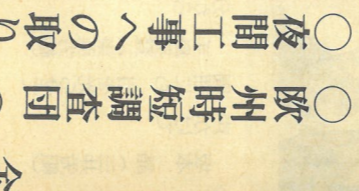 全
○欧州時短調査団
○夜間工事への取り